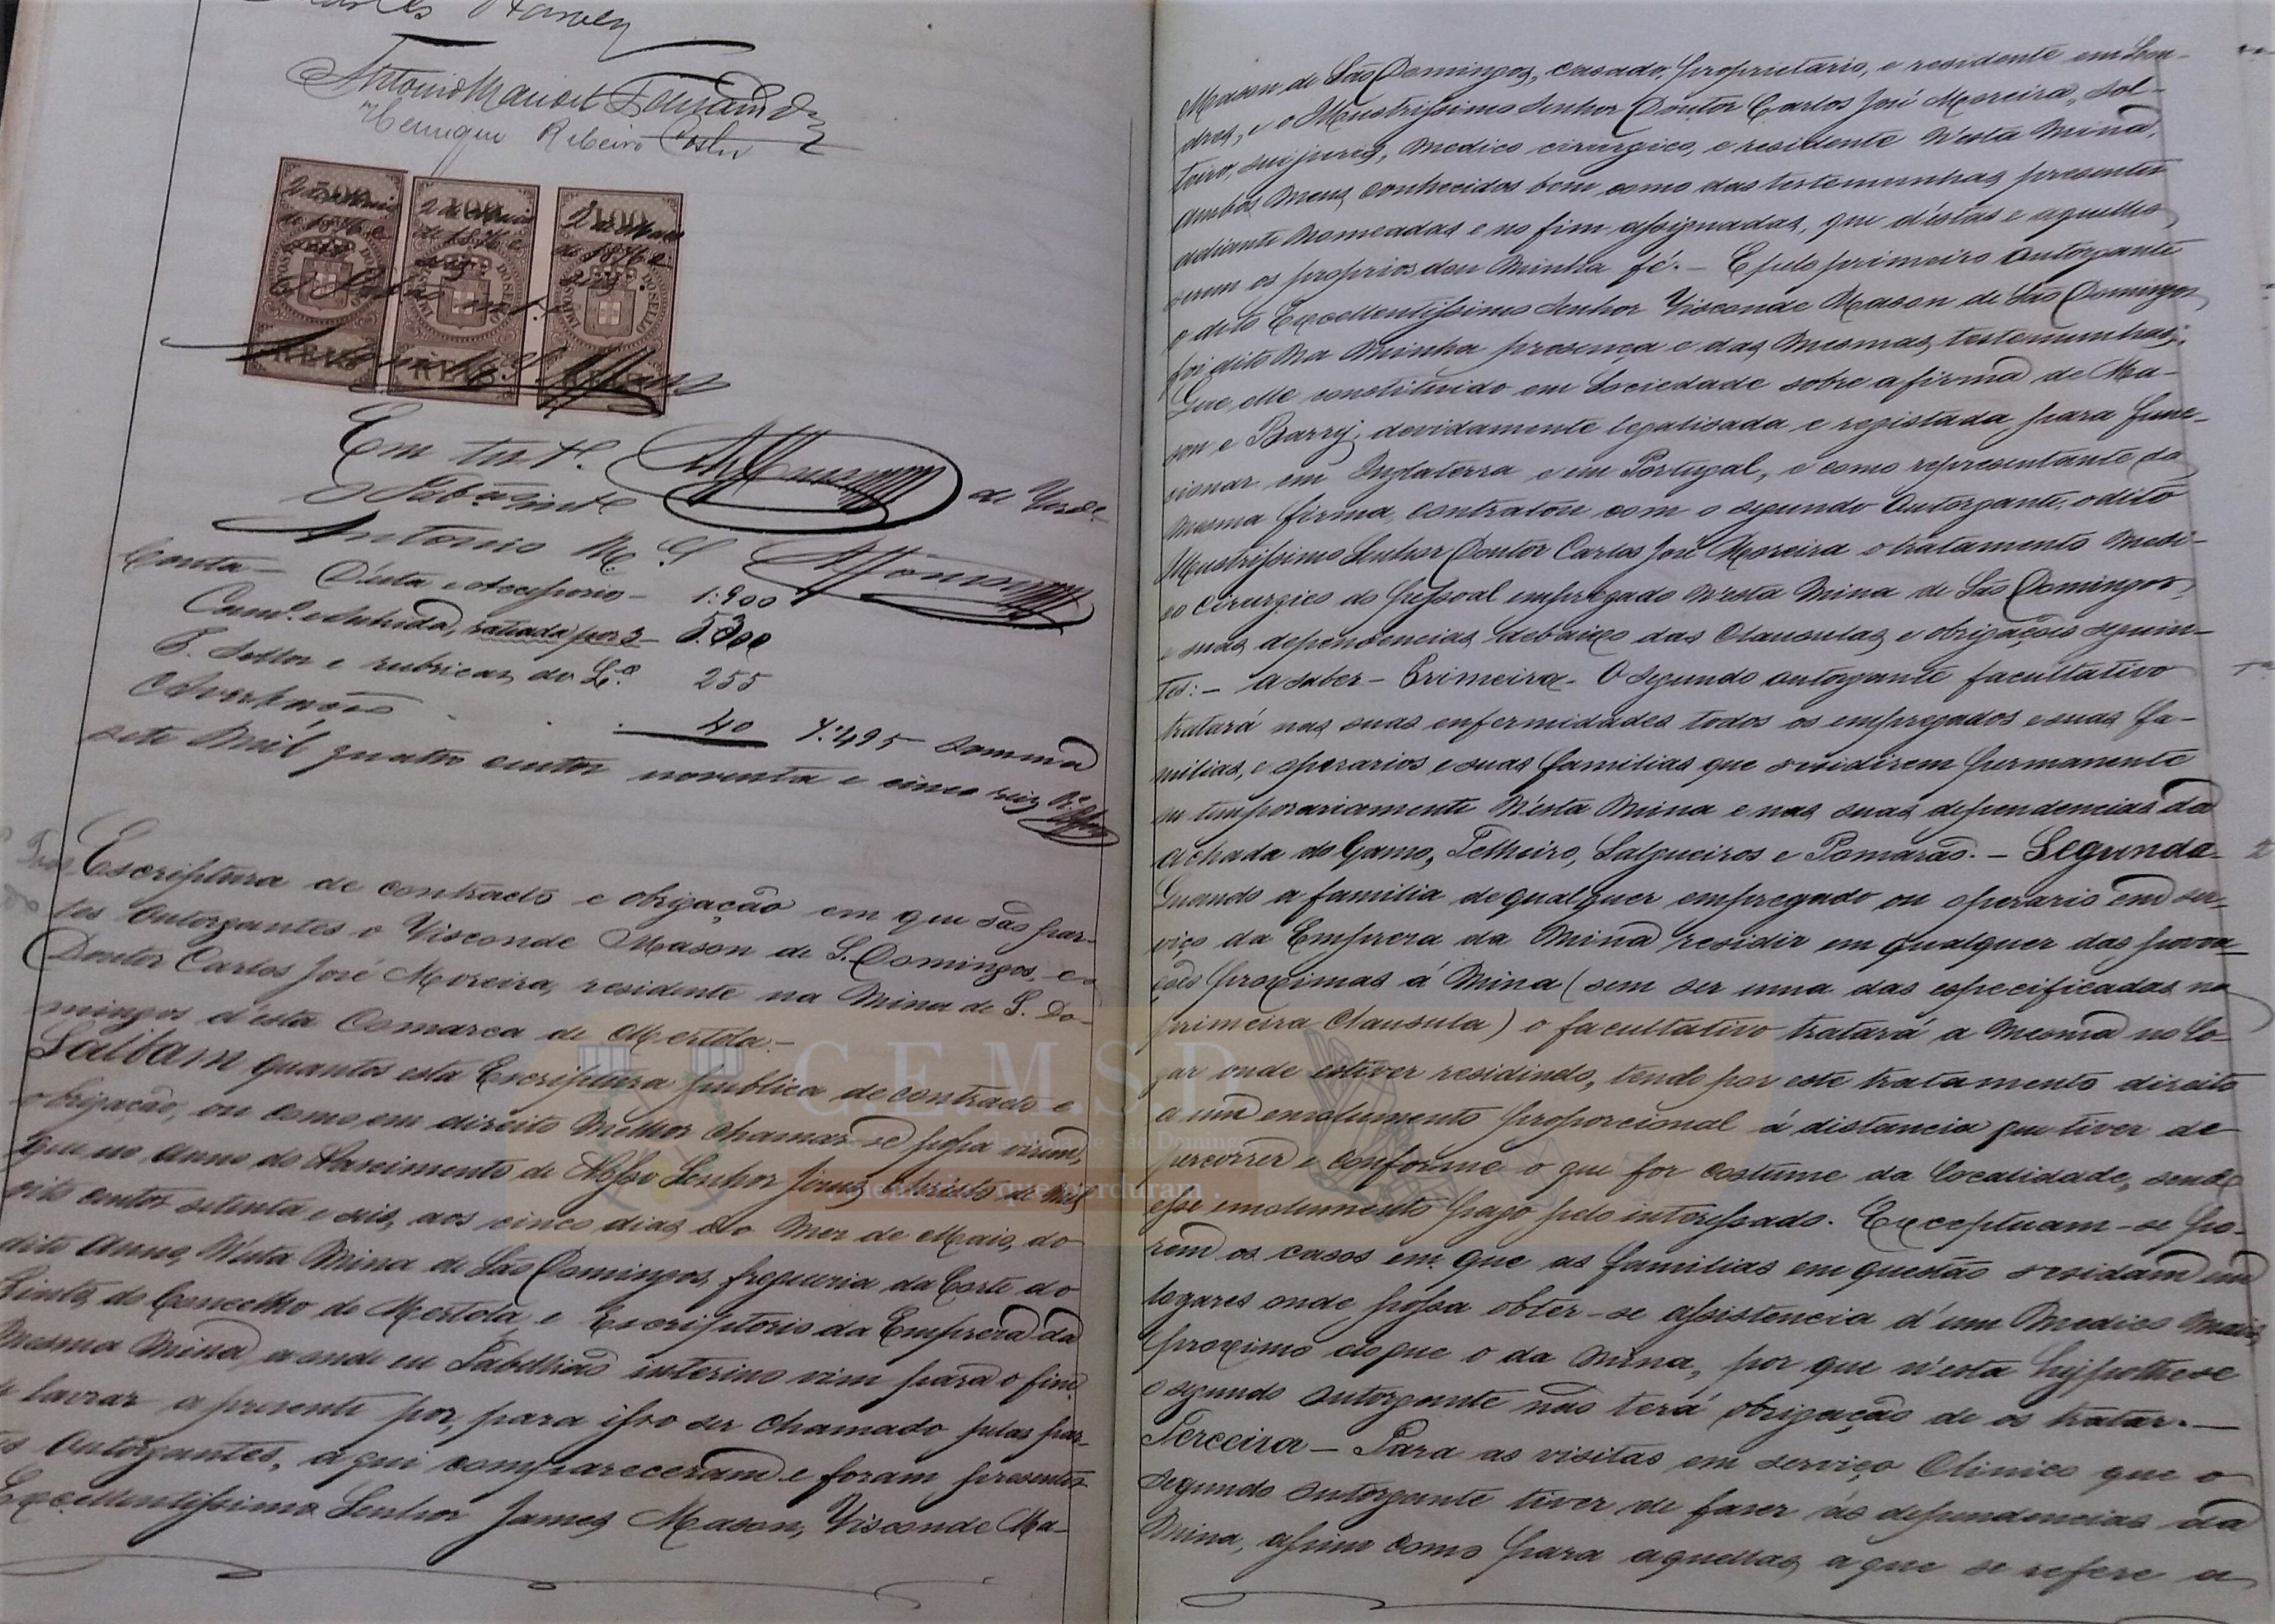 Charles Harvey
Antonio Manoel
Henrique Ribeiro Costa
100 100 100
2 de Maio
de 1876 e
seis
2 de Maio
de 1876 e
seis
2 de Maio
de 1876 e
seis
IMPOSTO DO SELLO
IMPOSTO DO SELLO
IMPOSTO DO SELLO
REIS REIS REIS
Em test.º de Verd.e
O Tabam int.e
Antonio M.el Affonso
Conta — D'esta e Accessorio — 1:900
Cam.º e estada, rateada por 3 — 5.300
S. Sellos e rubricas do L.º 255
40 7:495 Somma
sete mil quatro centos noventa e cinco reis
Escriptura de contracto e obrigação em que são par-
tes Outorgantes o Visconde Mason de S. Domingos, e o
Doutor Carlos José Moreira, residente na Mina de S. Do-
mingos d'esta Comarca de Mertola. —
Saibam quantos esta Escriptura publica de contracto e
obrigação, ou como em direito melhor chamar-se possa virem,
que no Anno do Nascimento de Nosso Senhor Jesus Christo de mil
oito centos setenta e seis, aos cinco dias do Mez de Maio, do
dito Anno, N'esta Mina de São Domingos, freguezia da Corte do
Pinto, do Concelho de Mertola e Escriptorio da Empreza da
mesma Mina, aonde eu Tabellião interino vim para o fim
de lavrar a presente por, para isso ser chamado pelas par-
tes Outorgantes, aqui compareceram e foram presentes
Excellentissimo Senhor James Mason, Visconde Ma-
Mason de São Domingos, casado, proprietario, e residente em Lon-
dres, e o Illustrissimo Senhor Doutor Carlos José Moreira, sol-
teiro, sui juris, medico cirurgico, e residente N'esta Mina,
ambos meus conhecidos bem como das testemunhas presentes
adiante nomeadas e no fim assignadas, que d'estas e aquelles
serem os proprios dou minha fé. — E pelo primeiro Outorgante
o dito Excellentissimo Senhor Visconde Mason de São Domingos
foi dito na minha presença e das mesmas testemunhas;
Que elle constituido em Sociedade sobre a firma de Ma-
son e Barry, devidamente legalisada e registada para func-
cionar em Inglaterra e em Portugal, e como representante da
mesma firma, contratou com o segundo Outorgante, o dito
Illustrissimo Senhor Doutor Carlos José Moreira o tratamento medi-
co cirurgico do pessoal empregado N'esta Mina de São Domingos,
e suas dependencias, debaixo das Clausulas e obrigações seguin-
tes: — A saber — Primeira — O segundo outorgante facultativo
tratará nas suas enfermidades todos os empregados e suas fa-
milias, e operarios e suas familias que residirem permanente
ou temporariamente N'esta Mina e nas suas dependencias da
Achada do Gamo, Telheiro, Salgueiros e Pomarão. — Segunda —
Quando a familia de qualquer empregado ou operario em ser-
viço da Empreza da Mina residir em qualquer das povoa-
ções proximas á Mina (sem ser uma das especificadas na
primeira Clausula) o facultativo tratará a mesma no lo-
gar onde estiver residindo, tendo por este tratamento direito
a um emolumento proporcional á distancia que tiver de
percorrer e conforme o que for costume da localidade, sendo
esse emolumento pago pelo interessado. Exceptuam-se po-
rem os casos em que as familias em questão residam em
logares onde possa obter-se assistencia d'um Medico mais
proximo do que o da Mina, por que n'esta hypothese
o segundo outorgante não terá obrigação de os tratar. —
Terceira — Para as visitas em serviço Clinico que o
segundo outorgante tiver de fazer ás dependencias da
Mina, assim como para aquellas a que se refere a
C.E.M.S.D
da Mina de São Domingos
memórias que perduram.